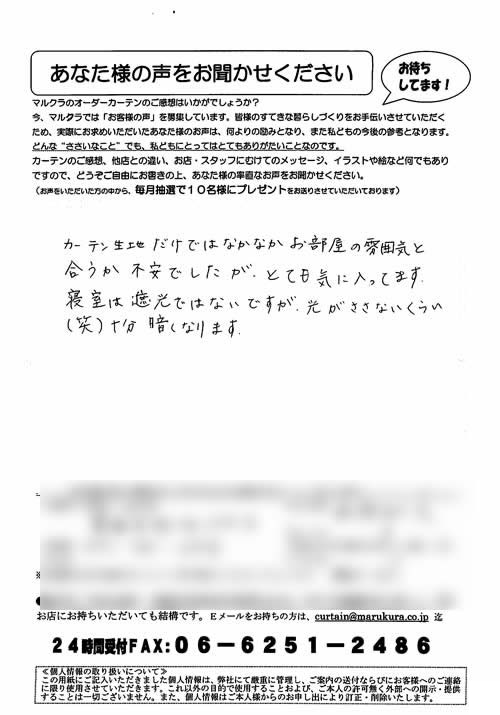 あなた様の声をお聞かせください
お待ち
してます！
マルクラのオーダーカーテンのご感想はいかがでしょうか？
今、マルクラでは「お客様の声」を募集しています。皆様のすてきな暮らしづくりをお手伝いさせていただく
ため、実際にお求めいただいたあなた様のお声は、何よりの励みとなり、また私どもの今後の参考となります。
どんな“ささいなこと”でも、私どもにとってはとてもありがたいことなのです。
カーテンのご感想、他店との違い、お店・スタッフにむけてのメッセージ、イラストや絵など何でもあり
ですので、どうぞご自由にお書きの上、あなた様の率直なお声をお聞かせください。
（お声をいただいた方の中から、毎月抽選で１０名様にプレゼントをお送りさせていただいております）
カーテン生地だけではなかなかお部屋の雰囲気と
合うか不安でしたが、とても気に入ってます。
寝室は遮光ではないですが、光がささないくらい
（笑）十分暗くなります。
お店にお持ちいただいても結構です。Ｅメールをお持ちの方は、curtain@marukura.co.jp 迄
２４時間受付FAX:０６－６２５１－２４８６
≪個人情報の取り扱いについて≫
この用紙にご記入いただきました個人情報は、弊社にて厳重に管理し、ご案内の送付ならびにお客様へのご連絡
に限り使用させていただきます。これ以外の目的で使用することおよび、ご本人の許可無く外部への開示・提供
することは一切ございません。また、個人情報はご本人様からのお申し出により訂正・削除いたします。